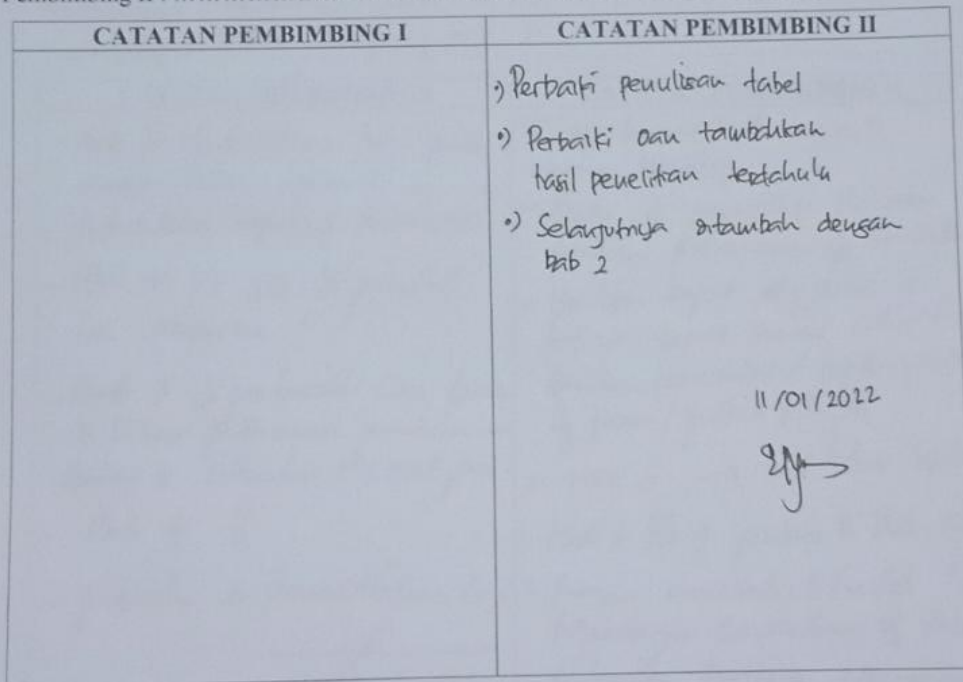 Pembimbing II
CATATAN PEMBIMBING I
CATATAN PEMBIMBING II
•) Perbaiki penulisan tabel
•) Perbaiki dan tambahkan
hasil penelitian terdahulu
•) Selanjutnya ditambah dengan
bab 2
11/01/2022